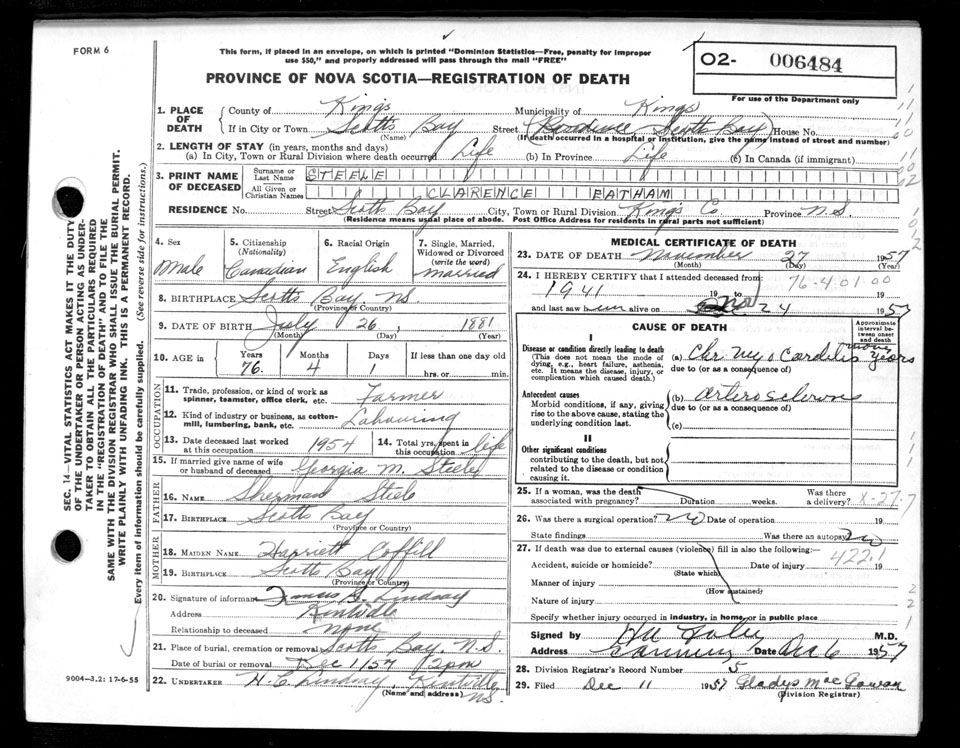 FORM 6
This form, if placed in an envelope, on which is printed "Dominion Statistics—Free, penalty for improper
use $50," and properly addressed will pass through the mail "FREE"
PROVINCE OF NOVA SCOTIA—REGISTRATION OF DEATH
O2- 006484
For use of the Department only
1. PLACE OF DEATH
County of Kings Municipality of Kings
If in City or Town Scotts Bay Street (Residence, Scotts Bay) House No.
(Name) (If death occurred in a hospital or institution, give the name instead of street and number)
2. LENGTH OF STAY (in years, months and days)
(a) In City, Town or Rural Division where death occurred Life (b) In Province Life (c) In Canada (if immigrant)
3. PRINT NAME OF DECEASED
Surname or Last Name STEELE
All Given or Christian Names CLARENCE EATHAM
RESIDENCE No. Street Scotts Bay City, Town or Rural Division Kings Co. Province N.S.
(Residence means usual place of abode. Post Office Address for residents in rural parts not sufficient)
4. Sex Male
5. Citizenship (Nationality) Canadian
6. Racial Origin English
7. Single, Married, Widowed or Divorced (write the word) Married
8. BIRTHPLACE Scotts Bay, NS
(Province or Country)
9. DATE OF BIRTH July 26, 1881
(Month) (Day) (Year)
10. AGE in Years Months Days If less than one day old
76 4 1 hrs. or min.
OCCUPATION
11. Trade, profession, or kind of work as spinner, teamster, office clerk, etc. Farmer
12. Kind of industry or business, as cotton-mill, lumbering, bank, etc. Labouring
13. Date deceased last worked at this occupation 1954
14. Total yrs. spent in this occupation life
15. If married give name of wife or husband of deceased Georgia M. Steele
FATHER
16. NAME Sherman Steele
17. BIRTHPLACE Scotts Bay
(Province or Country)
MOTHER
18. MAIDEN NAME Harriett Coffill
19. BIRTHPLACE Scotts Bay
(Province or Country)
20. Signature of informant Lindsay
Address Kentville
Relationship to deceased none
21. Place of burial, cremation or removal Scotts Bay, N.S.
Date of burial or removal Dec 1/57 2pm
22. UNDERTAKER H. C. Lindsay, Kentville NS.
(Name and address)
MEDICAL CERTIFICATE OF DEATH
23. DATE OF DEATH November 27 1957
(Month) (Day) (Year)
76-4-01-00
24. I HEREBY CERTIFY that I attended deceased from:
1941 19 to Nov 19
and last saw him alive on 24 1957
CAUSE OF DEATH
Approximate interval between onset and death
I
Disease or condition directly leading to death
(This does not mean the mode of dying, e.g., heart failure, asthenia, etc. It means the disease, injury, or complication which caused death.)
(a) Chr. Myocarditis years
due to (or as a consequence of)
Antecedent causes
Morbid conditions, if any, giving rise to the above cause, stating the underlying condition last.
(b) arterosclerosis
due to (or as a consequence of)
(c)
II
Other significant conditions
contributing to the death, but not related to the disease or condition causing it.
25. If a woman, was the death associated with pregnancy? Duration weeks. Was there a delivery? X-27-7
26. Was there a surgical operation? No Date of operation 19
State findings Was there an autopsy No
27. If death was due to external causes (violence) fill in also the following:—
422.1
Accident, suicide or homicide? Date of injury 19
(State which)
Manner of injury
(How sustained)
Nature of injury
Specify whether injury occurred in industry, in home, or in public place
Signed by M.D.
Address Canning Date Dec 6 1957
28. Division Registrar's Record Number 5
29. Filed Dec 11 1957 Gladys MacGowan
(Division Registrar)
SEC. 14—VITAL STATISTICS ACT MAKES IT THE DUTY
OF THE UNDERTAKER OR PERSON ACTING AS UNDER-
TAKER TO OBTAIN ALL THE PARTICULARS REQUIRED
IN THE "REGISTRATION OF DEATH" AND TO FILE THE
SAME WITH THE DIVISION REGISTRAR WHO SHALL ISSUE THE BURIAL PERMIT.
WRITE PLAINLY WITH UNFADING INK. THIS IS A PERMANENT RECORD.
Every item of information should be carefully supplied. (See reverse side for instructions.)
9004—3.2: 17-6-55